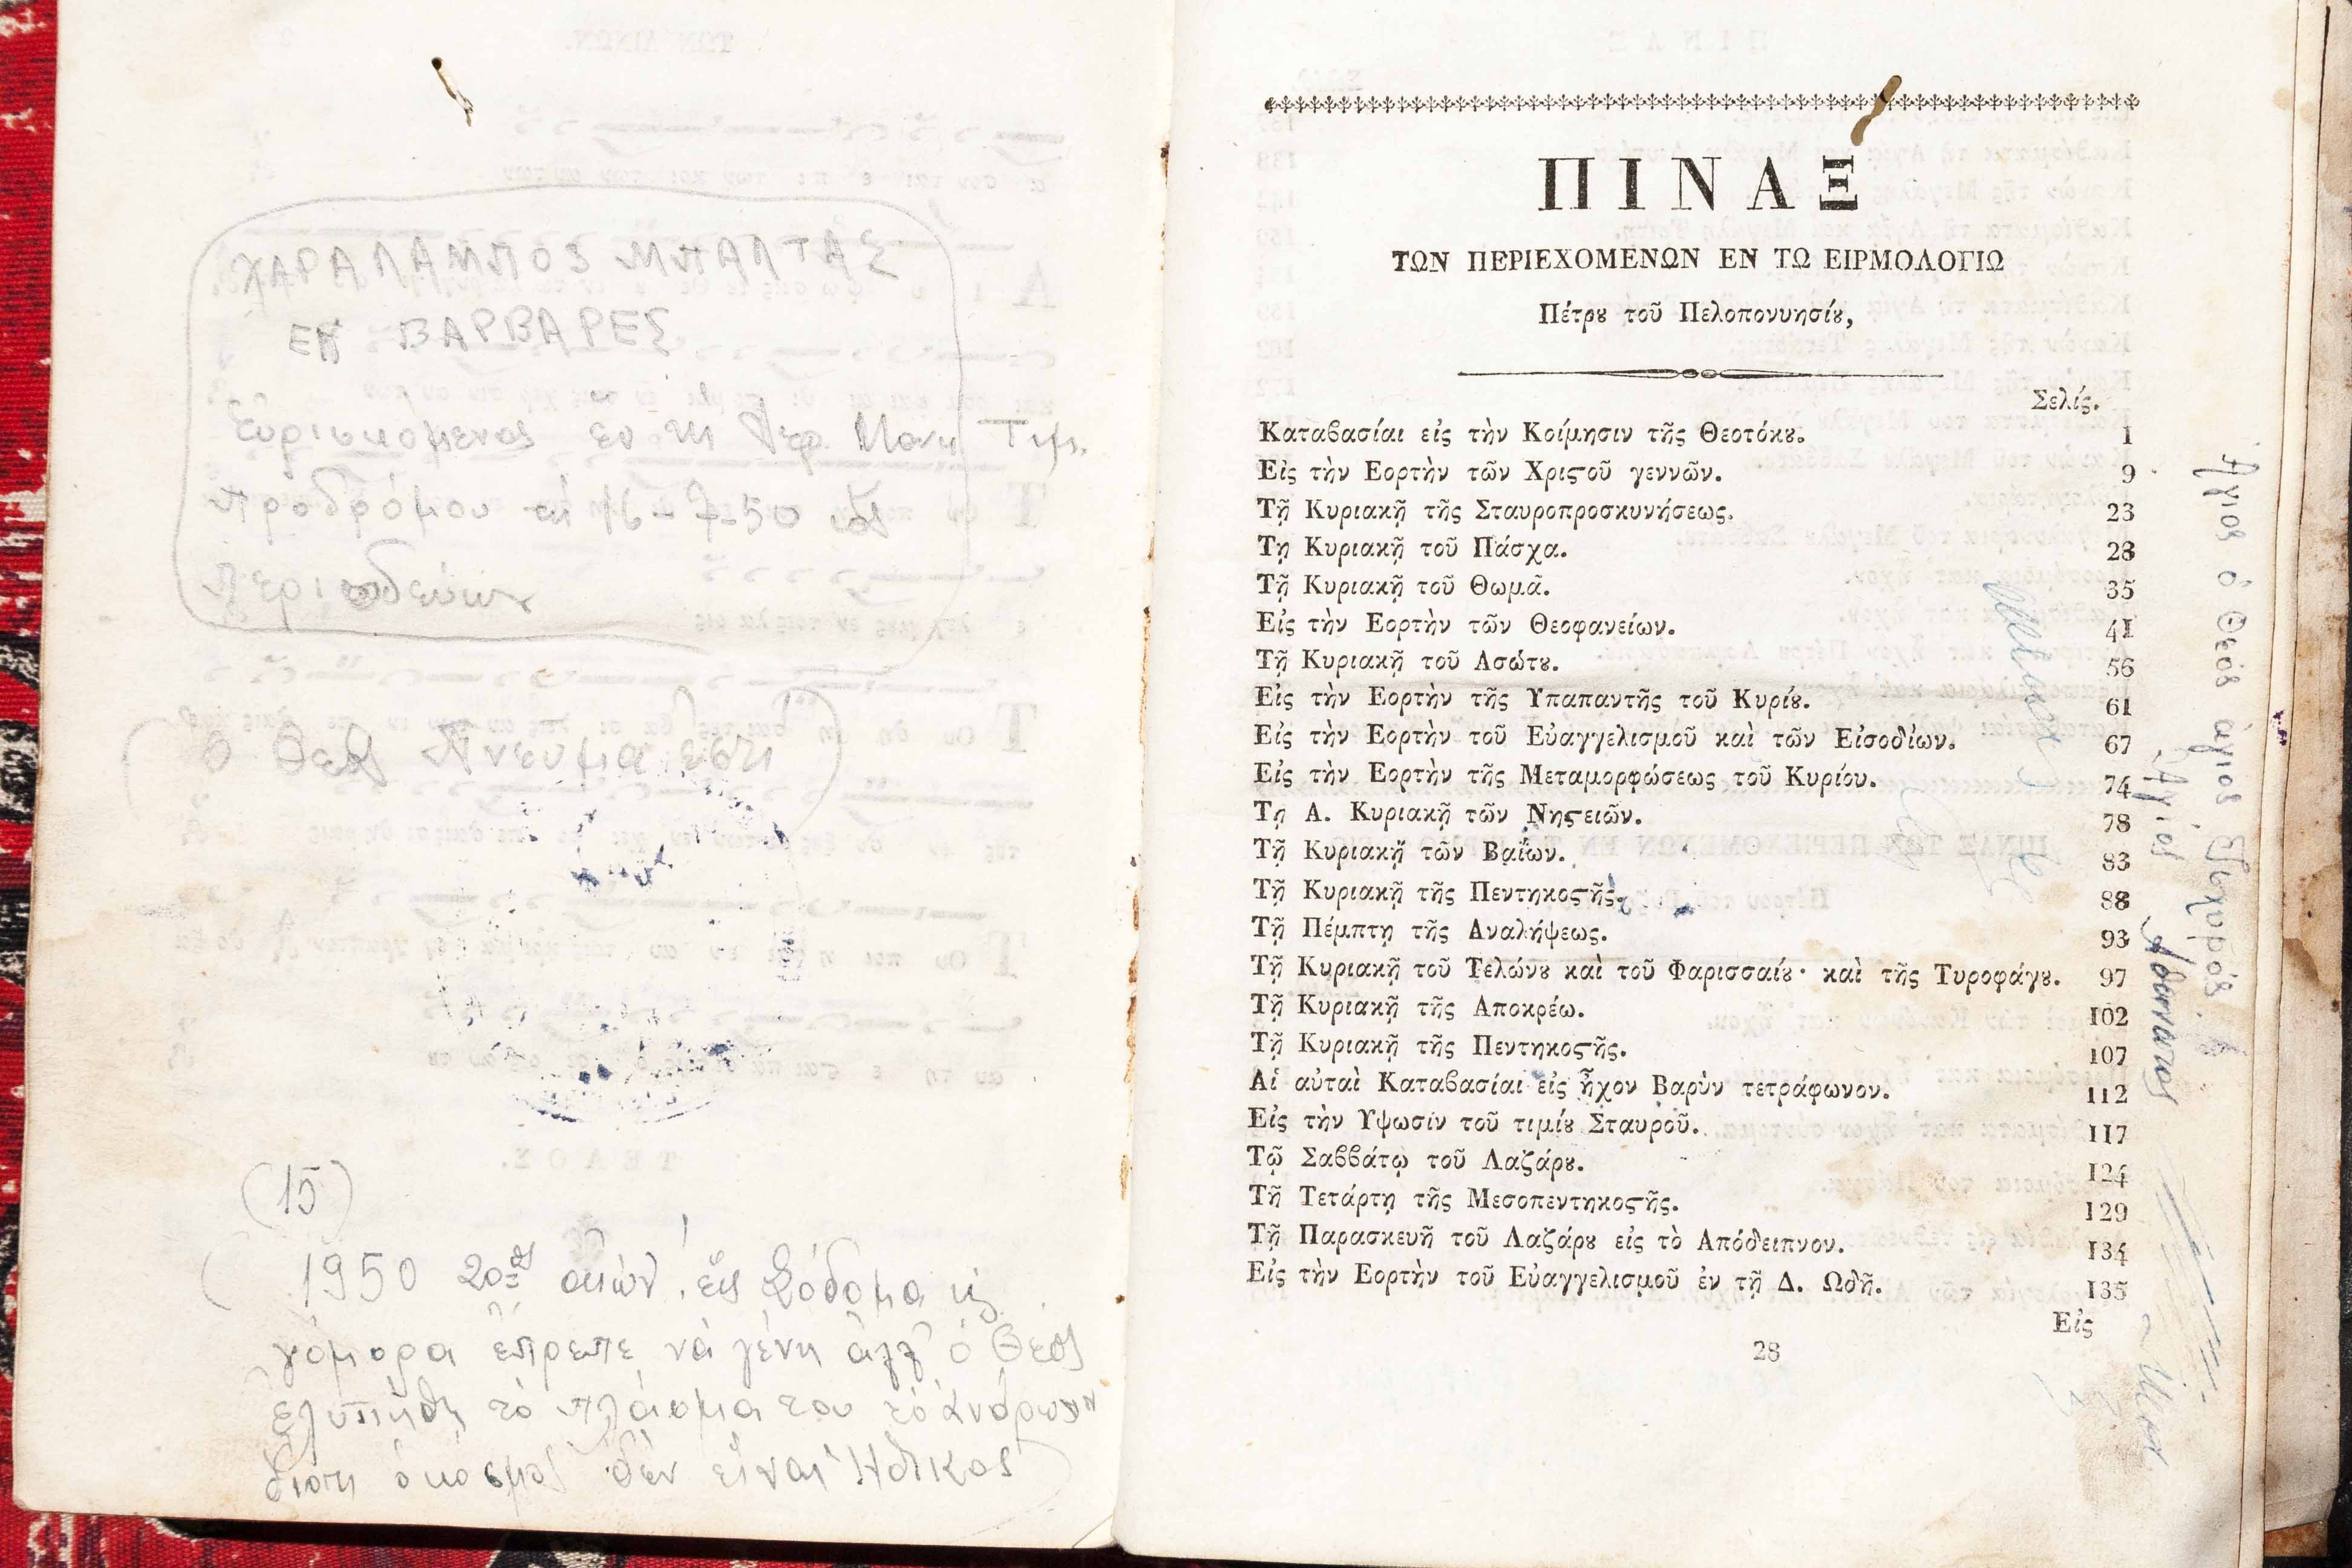 ΧΑΡΑΛΑΜΠΟΣ ΜΠΑΛΤΑΣ
ΕΚ ΒΑΡΒΑΡΕΣ
Εὑρισκόμενος ἐν τῇ Ἱερ. Μονη Τιμ.
Προδρόμου 16-7-50 ὡς
περιοδεύων
(Ο Θεὸς Πνευμα ἐστι)
(15)
(1950 20ος αιὼν. εἰς Σόδομα κ
γόμορα ἔπρεπε νὰ γένη ἀλλ' ὁ Θεὸς
ἐλυπήθη τὸ πλάσμα του τὸ ἄνθρωπ
διοτι ὁ κόσμος δὲν εἶναι Ηθικος
ΠΙΝΑΞ
ΤΩΝ ΠΕΡΙΕΧΟΜΕΝΩΝ ΕΝ ΤΩ ΕΙΡΜΟΛΟΓΙΩ
Πέτρȣ τοῦ Πελοπονυησίȣ,
Σελίς.
Καταβασίαι εἰς τὴν Κοίμησιν τῆς Θεοτόκȣ. 1
Εἰς τὴν Εορτὴν τῶν Χριϛοῦ γεννῶν. 9
Τῇ Κυριακῇ τῆς Σταυροπροσκυνήσεως. 23
Τῃ Κυριακῇ τοῦ Πάσχα. 28
Τῇ Κυριακῇ τοῦ Θωμᾶ. 35
Εἰς τὴν Εορτὴν τῶν Θεοφανείων. 41
Τῇ Κυριακῇ τοῦ Ασώτȣ. 56
Εἰς τὴν Εορτὴν τῆς Υπαπαντῆς τοῦ Κυρίȣ. 61
Εἰς τὴν Εορτὴν τοῦ Εὐαγγελισμοῦ καὶ τῶν Εἰσοδίων. 67
Εἰς τὴν Εορτὴν τῆς Μεταμορφώσεως τοῦ Κυρίου. 74
Τῃ Α. Κυριακῇ τῶν Νηϛειῶν. 78
Τῇ Κυριακῇ τῶν Βαΐων. 83
Τῇ Κυριακῇ τῆς Πεντηκοϛῆς. 88
Τῇ Πέμπτῃ τῆς Αναλήψεως. 93
Τῇ Κυριακῇ τοῦ Τελώνȣ καὶ τοῦ Φαρισσαίȣ· καὶ τῆς Τυροφάγȣ. 97
Τῇ Κυριακῇ τῆς Αποκρέω. 102
Τῇ Κυριακῇ τῆς Πεντηκοϛῆς. 107
Αἱ αὐταὶ Καταβασίαι εἰς ἦχον Βαρὺν τετράφωνον. 112
Εἰς τὴν Υψωσιν τοῦ τιμίȣ Σταυροῦ. 117
Τῷ Σαββάτῳ τοῦ Λαζάρȣ. 124
Τῇ Τετάρτῃ τῆς Μεσοπεντηκοϛῆς. 129
Τῇ Παρασκευῇ τοῦ Λαζάρȣ εἰς τὸ Απόδειπνον. 134
Εἰς τὴν Εορτὴν τοῦ Εὐαγγελισμοῦ ἐν τῇ Δ. Ωδῇ. 135
Εἰς
28
Ἅγιος ὁ Θεὸς ἅγιος Ισχυρός.
Ἅγιος Ἀθανατος